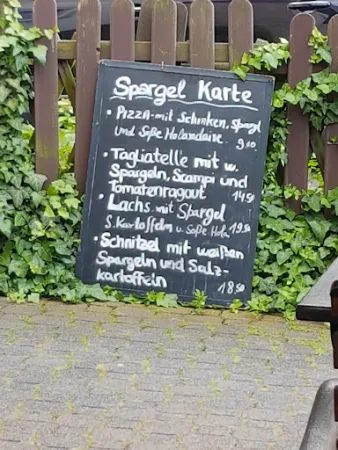 Spargel Karte
• Pizza mit Schinken, Spargel
und Soße Holandaise
9,80
• Tagliatelle mit w.
Spargeln, Scampi und
Tomatenragout 14,50
• Lachs mit Spargel
S. Kartoffeln u. Soße Hola. 19,50
• Schnitzel mit weißen
Spargeln und Salz-
kartoffeln 18,50